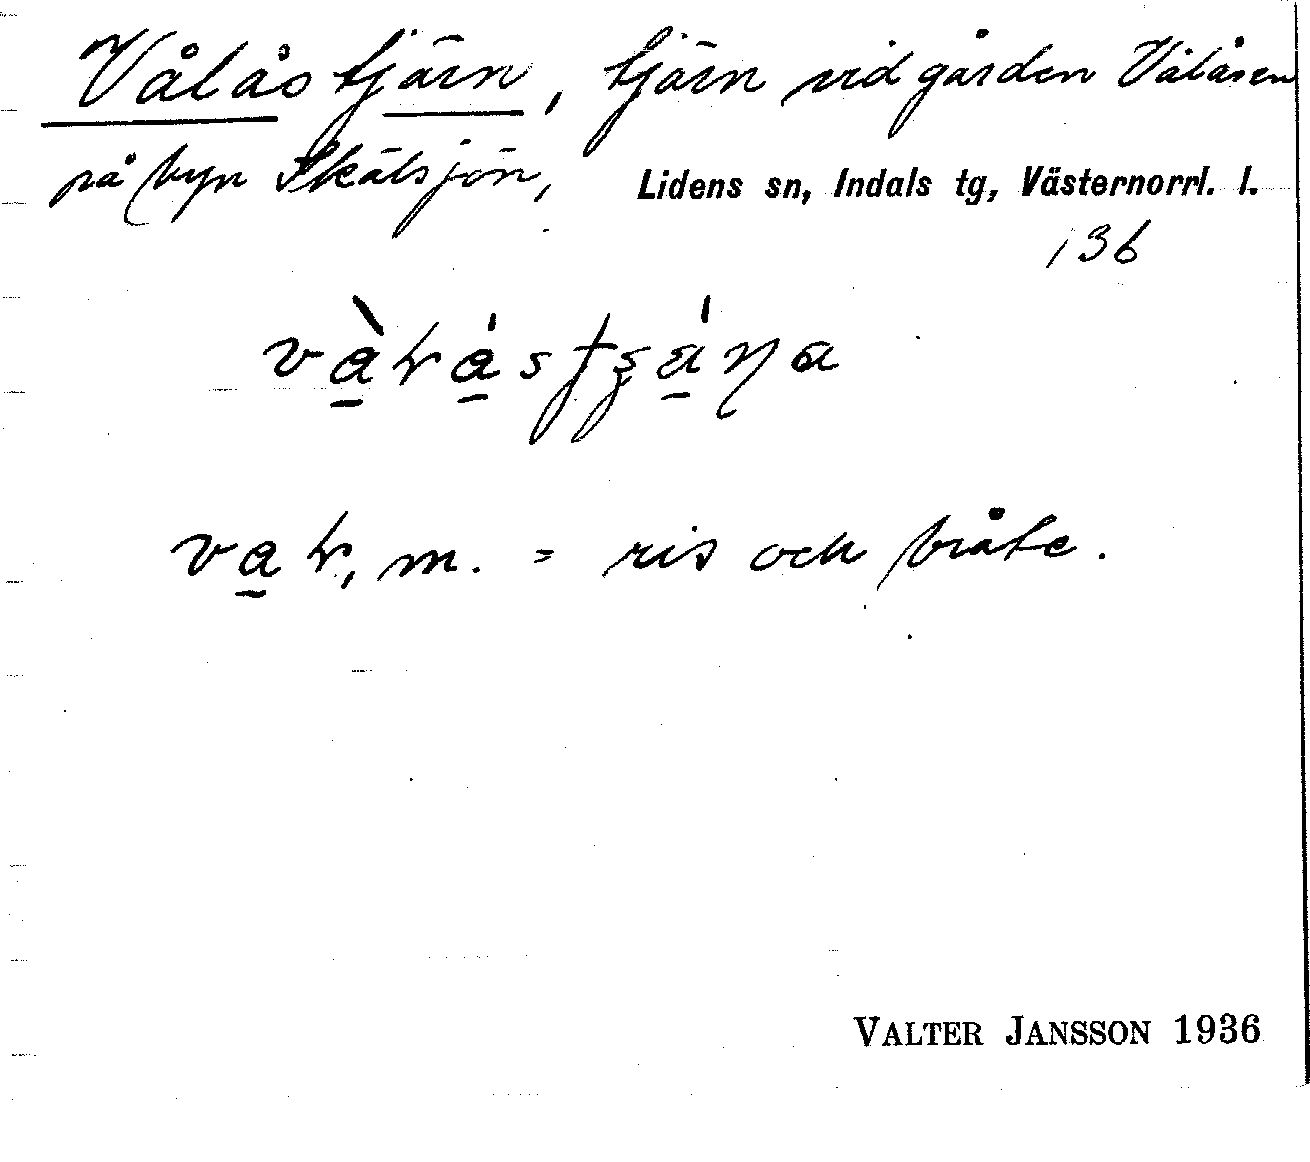 Vålåstjärn, tjärn vid gården Vålåsen
på byn Skälsjön, Lidens sn, Indals tg, Västernorrl. l.
136
m. = ris och bråte.
VALTER JANSSON 1936